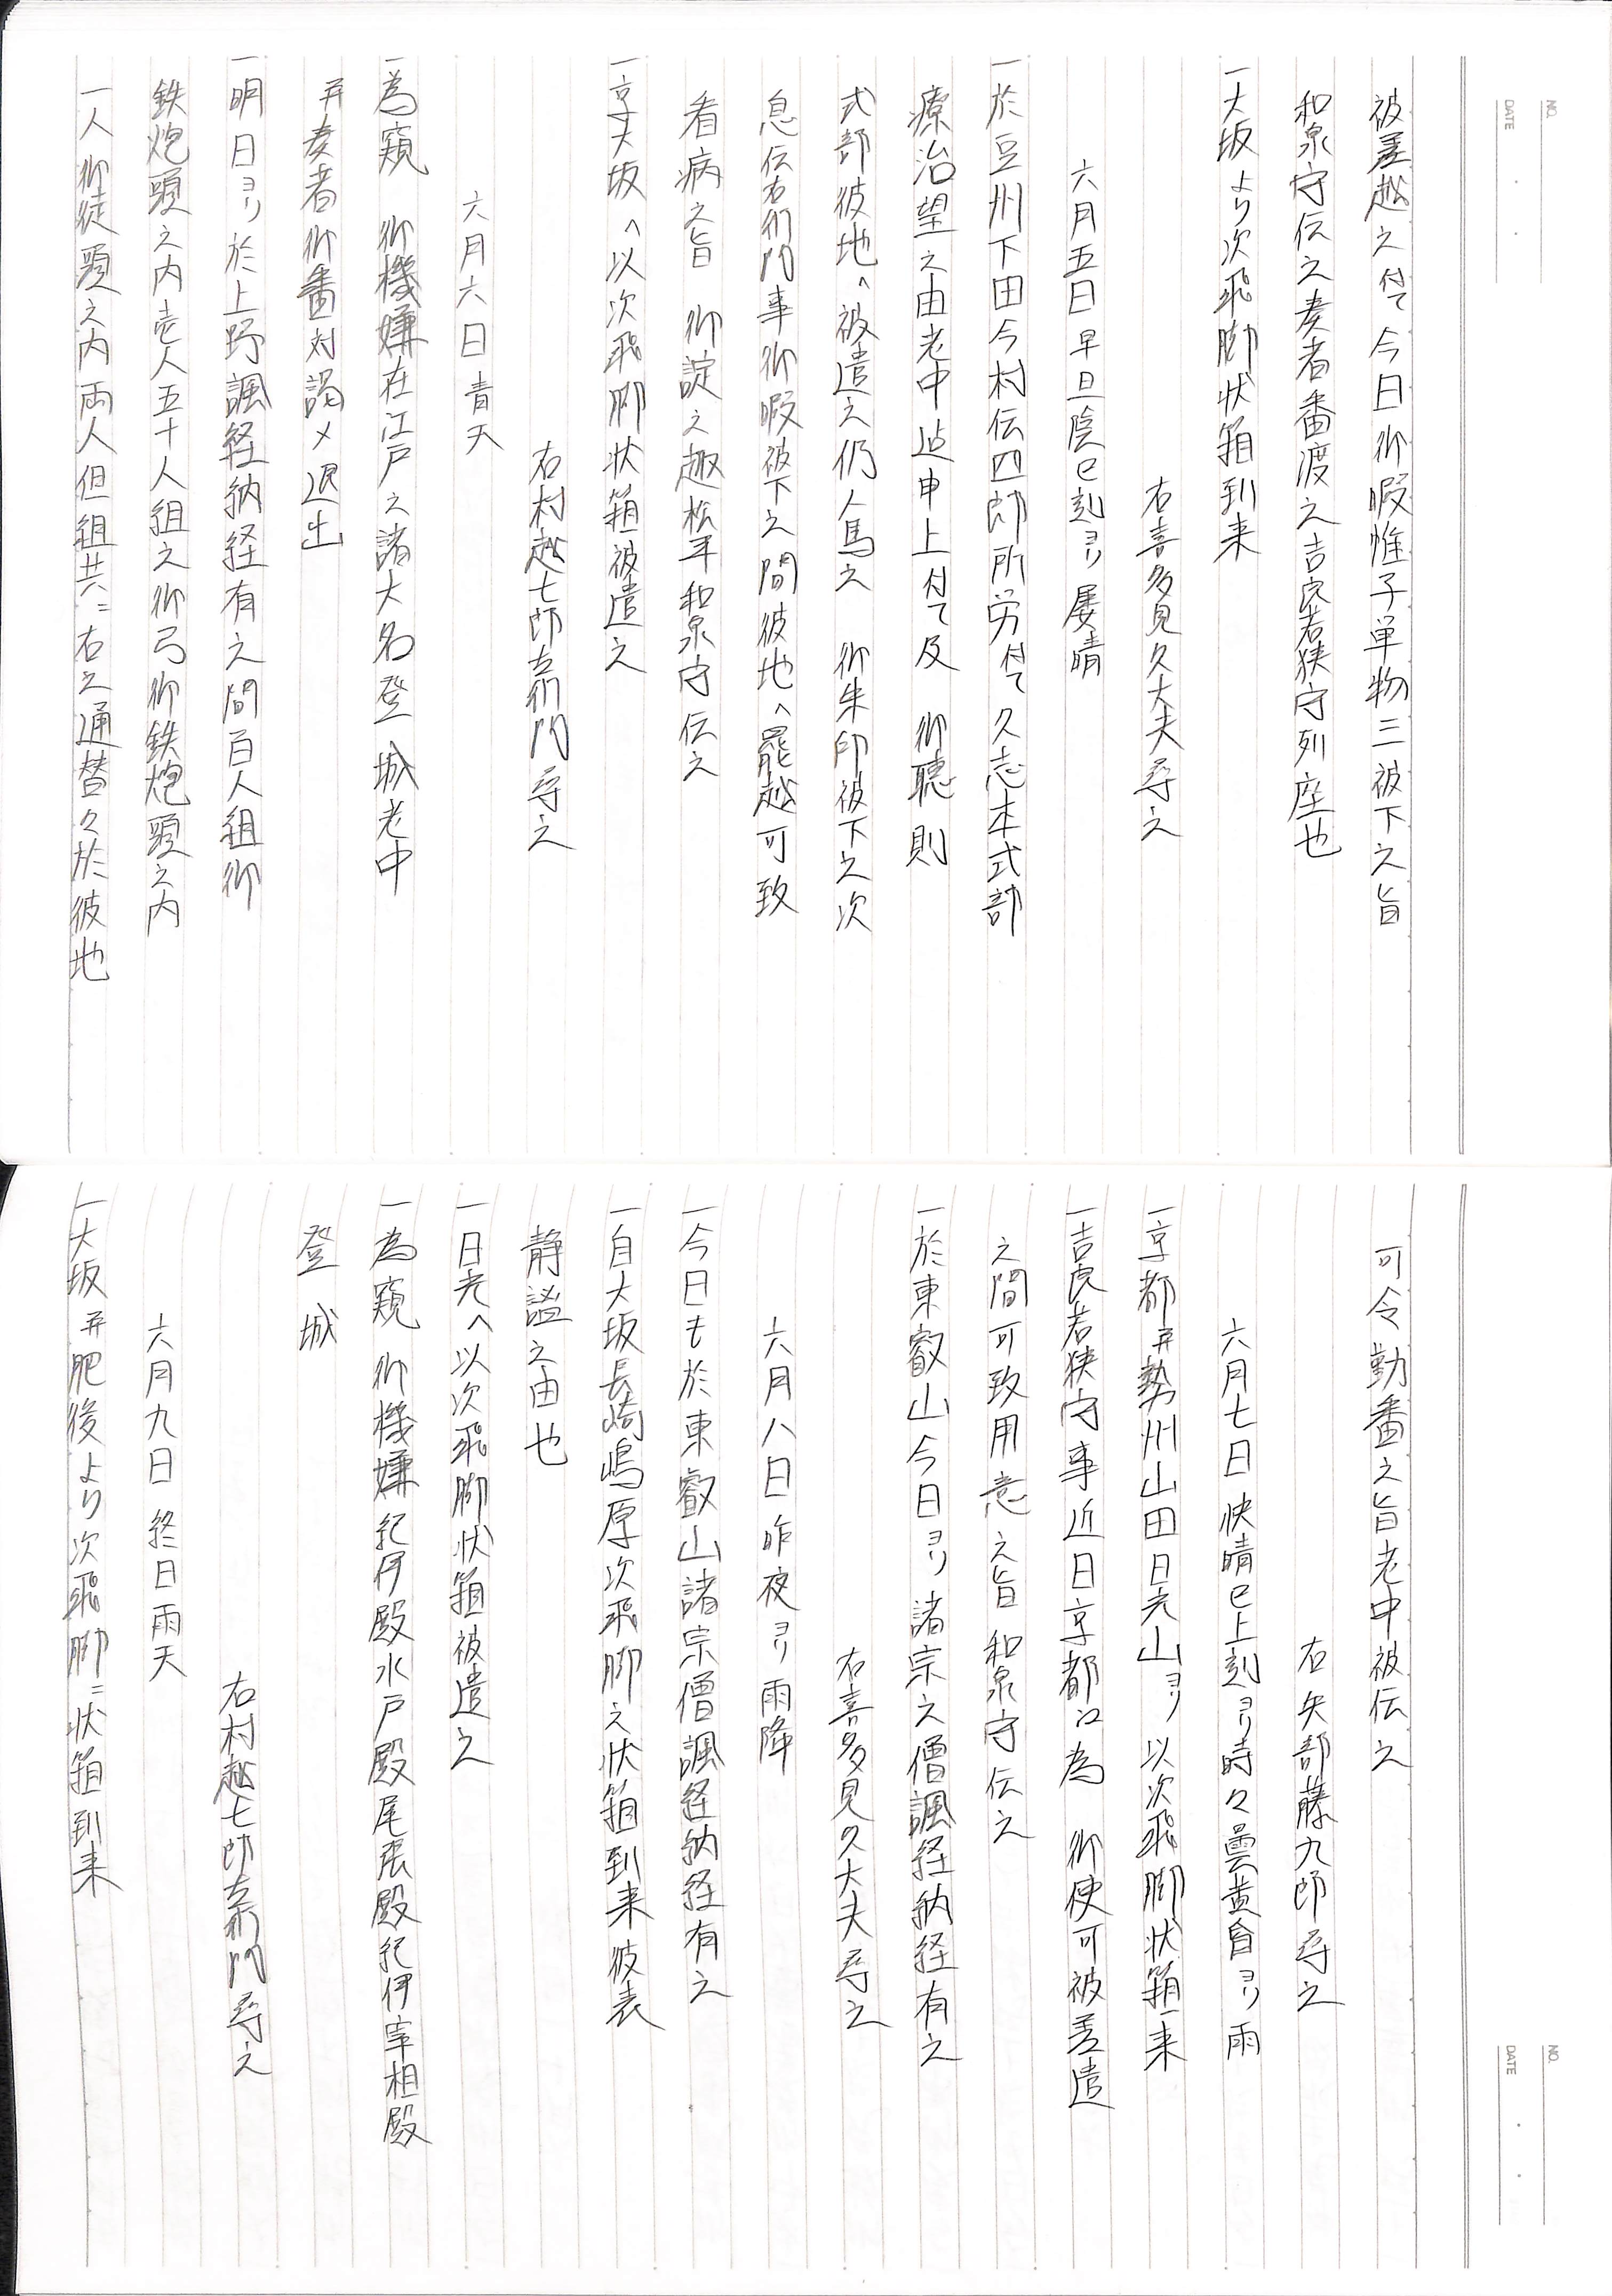 被差越之付て今日御暇惟子単物三被下之旨
和泉守伝之奏者番渡之吉良若狭守列座也
一大坂より次飛脚状箱到来
右喜多見久大夫尋之
六月五日 早旦陰巳刻ヨリ屡晴
一於豆州下田今村伝四郎所労付て久志本式部
療治望之由老中迄申上付て及 御聴則
式部彼地へ被遣之仍人馬之 御朱印被下之次
息伝右衛門事御暇被下之間彼地へ罷越可致
看病之旨 御諚之趣松平和泉守伝之
一京大坂へ以次飛脚状箱被遣之
右村越七郎左衛門尋之
六月六日 青天
一為窺 御機嫌在江戸之諸大名登 城老中
并奏者御番対謁〆退出
一明日ヨリ於上野諷経納経有之間百人組御
鉄炮頭之内壱人五十人組之御弓御鉄炮頭之内
一人御徒頭之内両人但組共ニ右之通替々於彼地
可令勤番之旨老中被伝之
右矢部藤九郎尋之
六月七日 快晴巳上刻ヨリ時々曇黄昏ヨリ雨
一京都并勢州山田日光山ヨリ以次飛脚状箱来
一吉良若狭守事近日京都江為 御使可被差遣
之間可致用意之旨和泉守伝之
一於東叡山今日ヨリ諸宗之僧諷経納経有之
右喜多見久大夫尋之
六月八日 昨夜ヨリ雨降
一今日も於東叡山諸宗僧諷経納経有之
一自大坂長崎嶋原次飛脚之状箱到来彼表
静謐之由也
一日光へ以次飛脚状箱被遣之
一為窺 御機嫌紀伊殿水戸殿尾張殿紀伊宰相殿
登 城
右村越七郎左衛門尋之
六月九日 終日雨天
一大坂并肥後より次飛脚ニ状箱到来